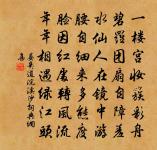 一樣宮妝簇彩舟
碧羅團扇自障羞
水仙人在鏡中游
腰自細來多態度
臉因紅處轉風流
年年相遇綠江頭
晏幾道浣溪沙詞